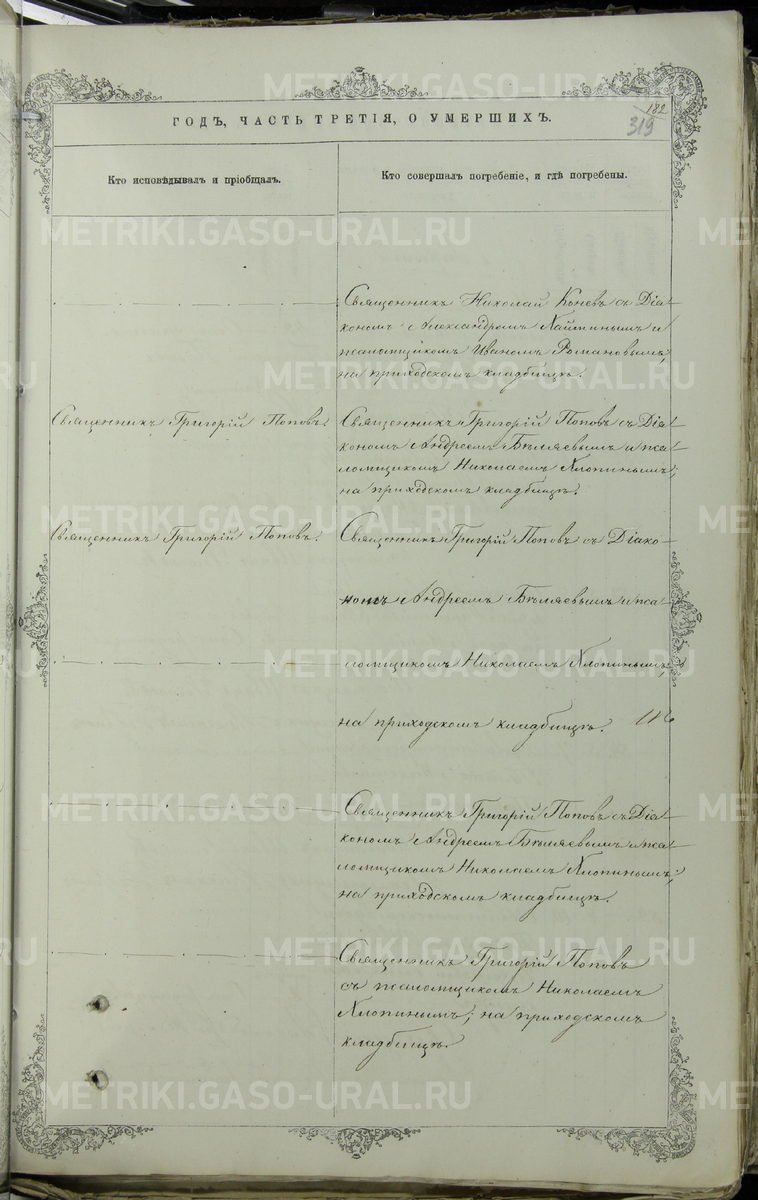 182
319
ГОДЪ, ЧАСТЬ ТРЕТІЯ, О УМЕРШИХЪ.
Кто исповѣдывалъ и пріобщалъ.
Кто совершалъ погребеніе, и гдѣ погребены.
Священникъ Николай Коневъ съ Діа-
кономъ Александромъ и
псаломщикомъ Иваномъ Романовымъ,
на приходскомъ кладбищѣ.
Священникъ Григорій Поповъ.
Священникъ Григорій Поповъ съ Діа-
кономъ Андреемъ Бѣляевымъ и пса-
ломщикомъ Николаемъ Хлопинымъ;
на приходскомъ кладбищѣ.
Священникъ Григорій Поповъ.
Священникъ Григорій Поповъ съ Діако-
номъ Андреемъ Бѣляевымъ и пса-
ломщикомъ Николаемъ Хлопинымъ;
на приходскомъ кладбищѣ.
Священникъ Григорій Поповъ съ Діа-
кономъ Андреемъ Бѣляевымъ и пса-
ломщикомъ Николаемъ Хлопинымъ;
на приходскомъ кладбищѣ.
Священникъ Григорій Поповъ
съ псаломщикомъ Николаемъ
Хлопинымъ; на приходскомъ
кладбищѣ.
METRIKI.GASO-URAL.RU
METRIKI.GASO-URAL.RU
METRIKI.GASO-URAL.RU
METRIKI.GASO-URAL.RU
METRIKI.GASO-URAL.RU
METRIKI.GASO-URAL.RU
METRIKI.GASO-URAL.RU
METRIKI.GASO-URAL.RU